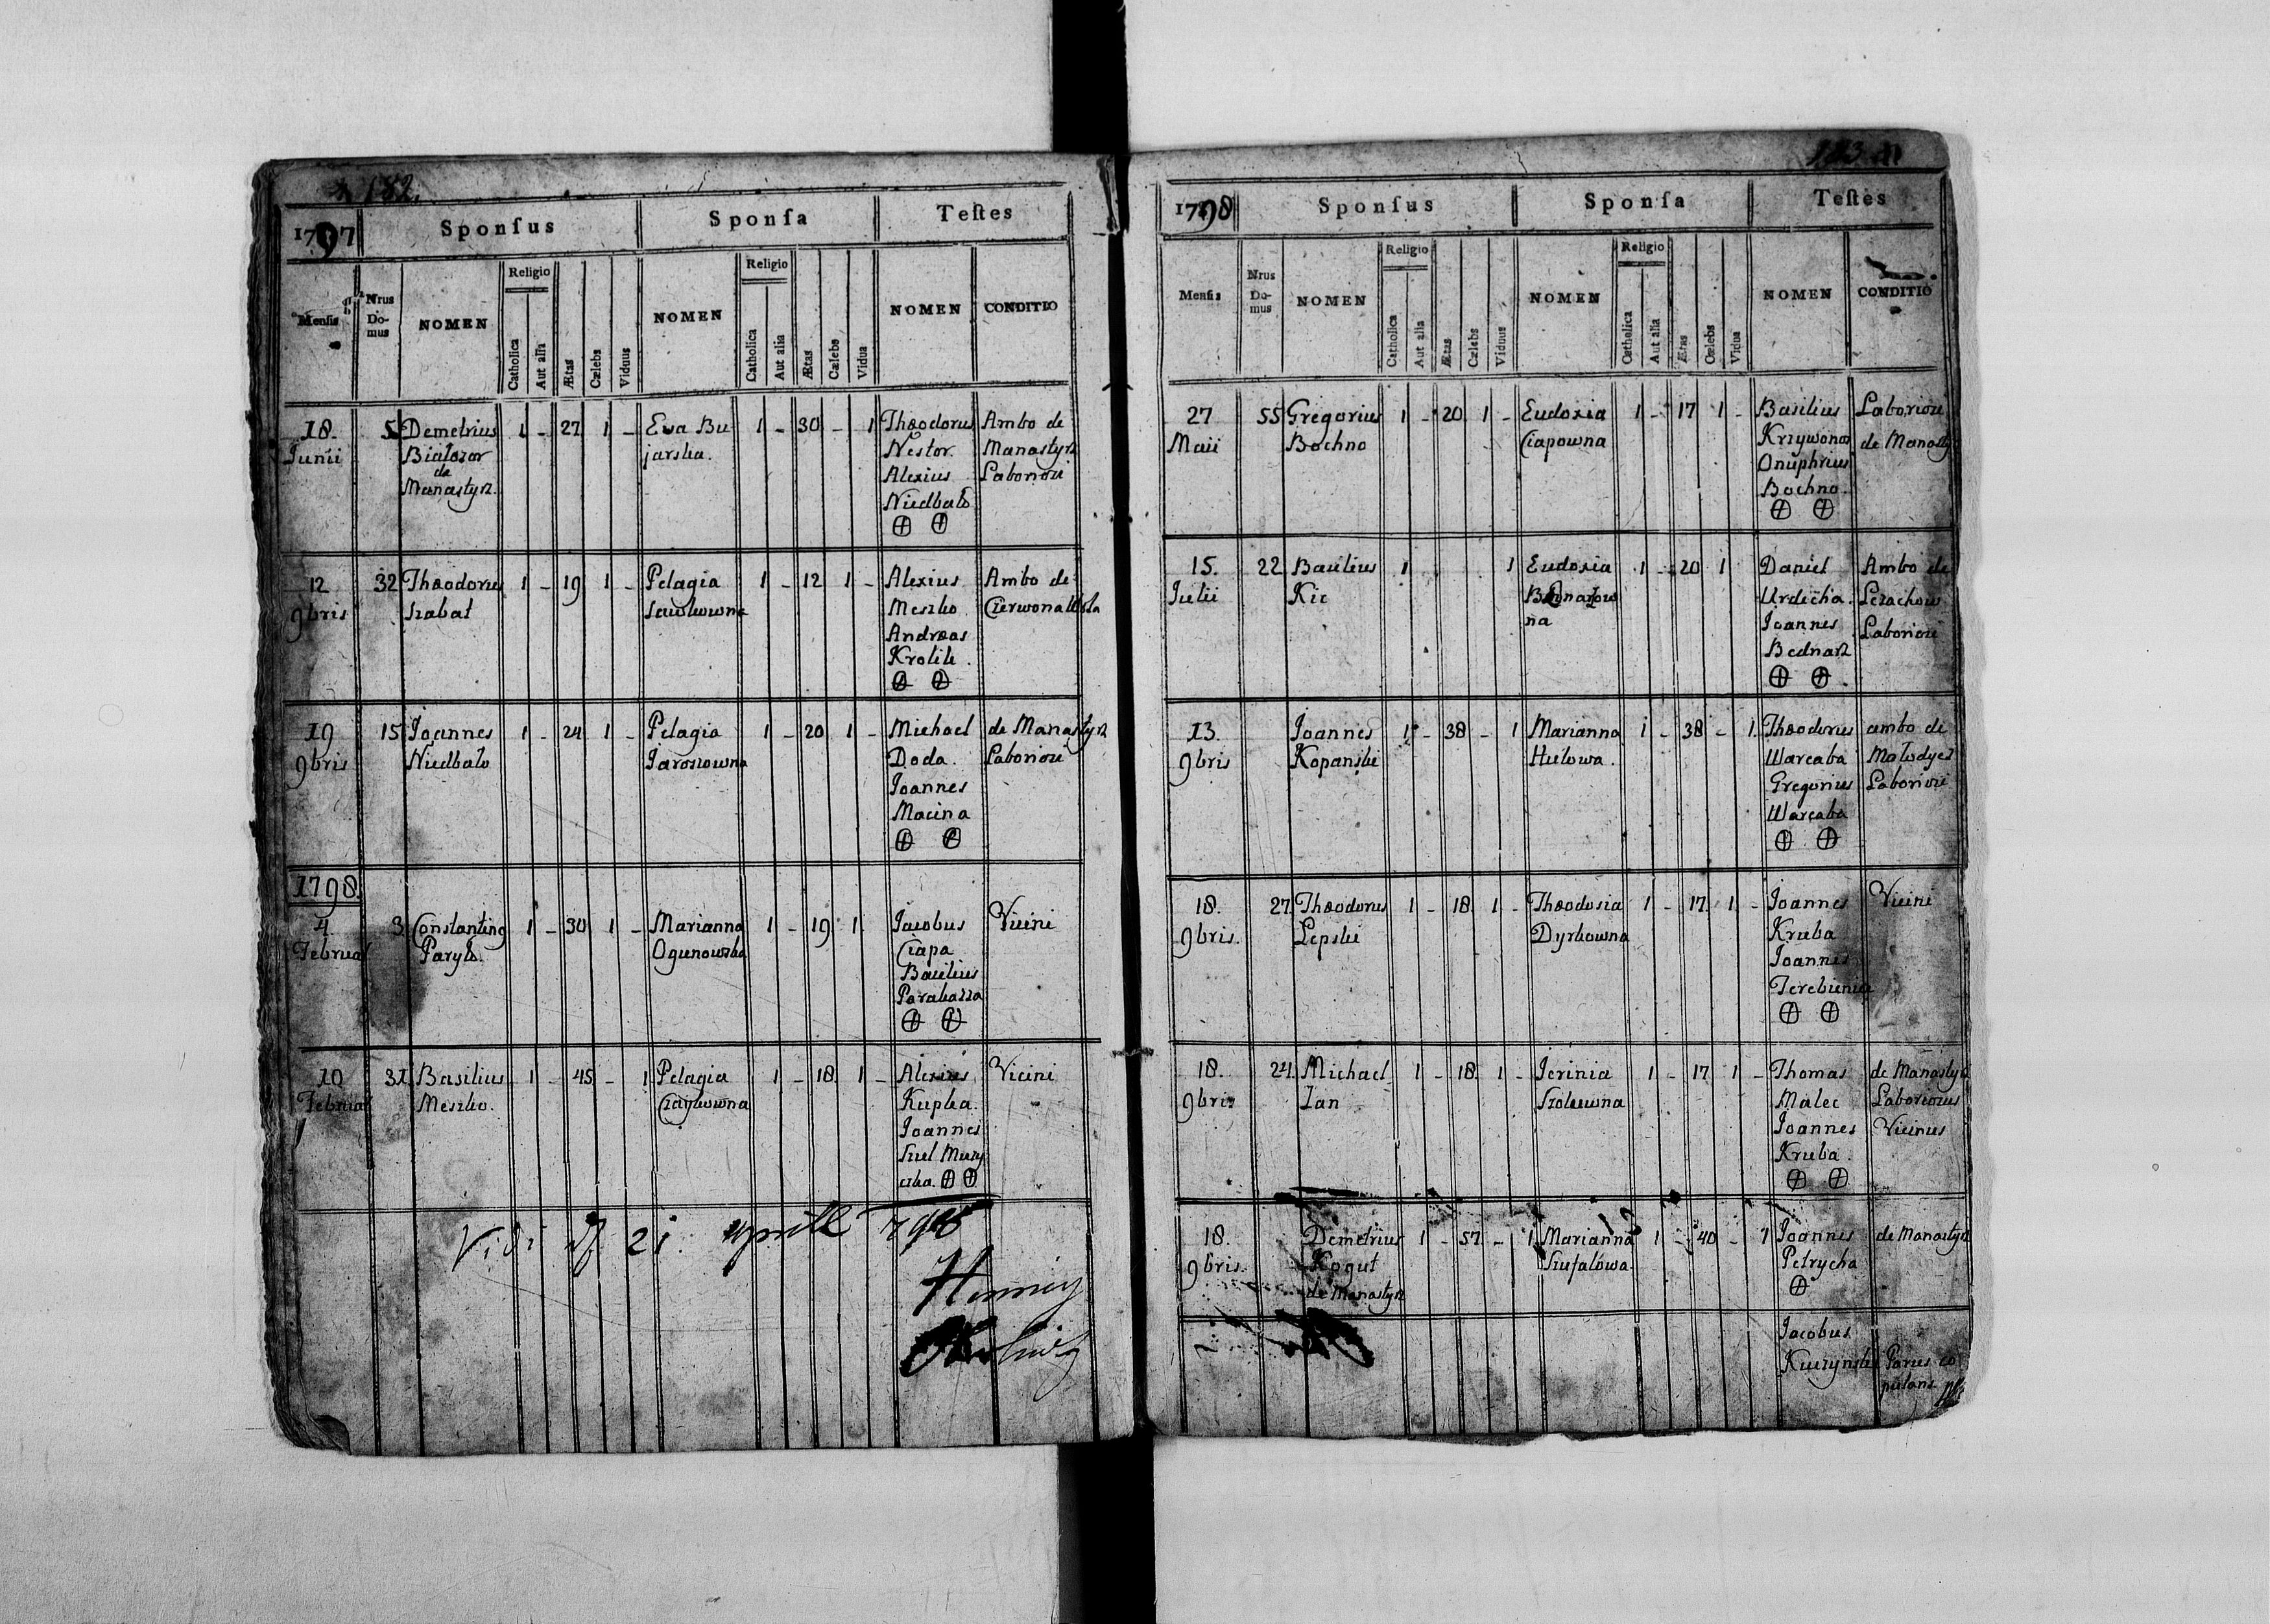 182.
1797 Sponſus Sponſa Teſtes
Menſis Nrus Domus NOMEN Religio Catholica Aut alia Ætas Cælebs Viduus NOMEN Religio Catholica Aut alia Ætas Cælebs Vidua NOMEN CONDITIO
18. 5 Demetrius 1 - 27 1 - Eva Bu 1 - 30 - 1 Theodorus Ambo de
Junii Białozor jarska. Nestor. Manastyrz
de Alexius Laboriosi
Manastyrz. Niedbało
12 32 Theodorus 1 - 19 1 - Pelagia 1 - 12 1 - Alexius Ambo de
9bris Szabat Meszko
Andreas
Krolik.
19 15 Joannes 1 - 24 1 - Pelagia 1 - 20 1 - Michael de Manastyrz
9bris Niedbało Jaroszowna Doda. Laboriosi
Joannes
Macina
1798.
4. 3. 1 - 30 1 - Marianna 1 - 19 1 Jacobus Vicini
Februa Paryło. Ciapa
Basilius
10 31. Basilius 1 - 45 - 1 Pelagia 1 - 18. 1 - Alexius Vicini
Februa Meszko. Kupka.
Joannes
Vidi 21. aprill 798
1798 Sponſus Sponſa Teſtes
Menſis Nrus Domus NOMEN Religio Catholica Aut alia Ætas Cælebs Viduus NOMEN Religio Catholica Aut alia Ætas Cælebs Vidua NOMEN CONDITIO
27 55 Gregorius 1 - 20 1 - Eudoxia 1 - 17 1 - Basilius Laboriosi
Maii Bochno Ciapowna Krzywonos de Manasty
Onuphrius
Bochno.
15. 22 Basilius 1 1 Eudoxia 1 - 20 1 Daniel Ambo de
Julii Kic Urdicha.
na Joannes Laboriosi
Bednarz
13. Joannes 1 - 38 - 1 Marianna 1 - 38 - 1. Theodorus ambo de
9bris Kopanski Warcaba Mołodycz
Gregorius Laboriosi
Warcaba
18. 27. Theodorus 1 - 18. 1 - Theodosia 1 - 17. 1 - Joannes Vicini
9bris. Lepski Dyrkowna Kruba
Joannes
18. 24. Michael 1 - 18. 1 - 1 - 17 1 - Thomas de Manastyrz
9bris Zan Malec Laboriosus
Joannes Vicinus
Kruba.
18. Demetrius 1 - 57 - 1 Marianna 1 - 40 - 1 Joannes de Manastyrz
9bris. Kogut Szufałowa Petrycha
de Manastyrz
Jacobus